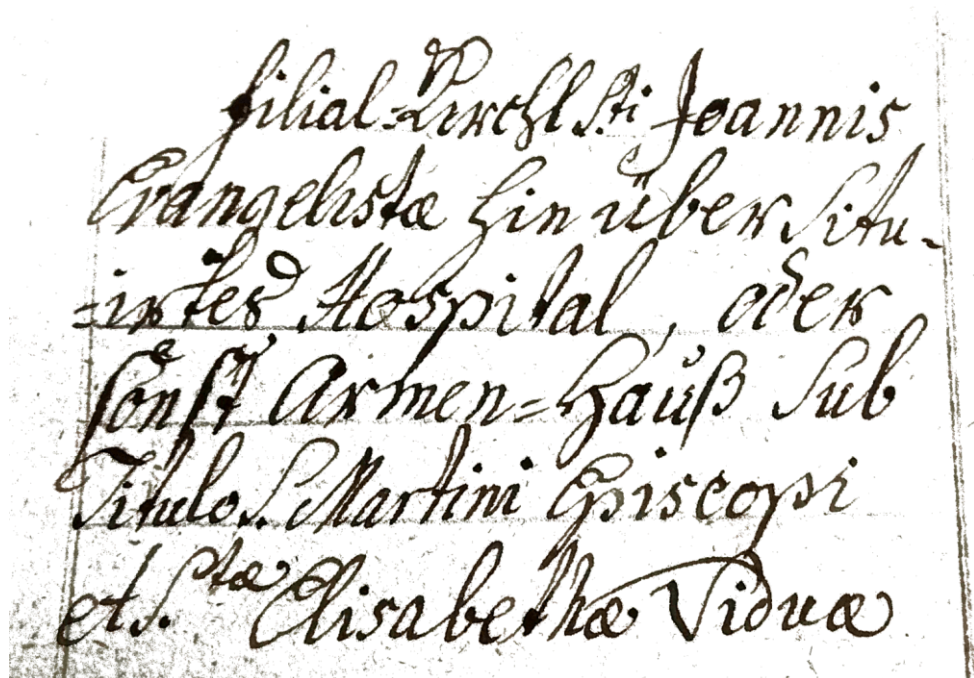 filial=Kirchl S.ti Joannis
Evangelistæ hin über Situ=
=irtes Hospital, oder
sonst Armen=Hauß Sub
Titulo S. Martini Episcopi
et S.tæ Elisabethæ Viduæ